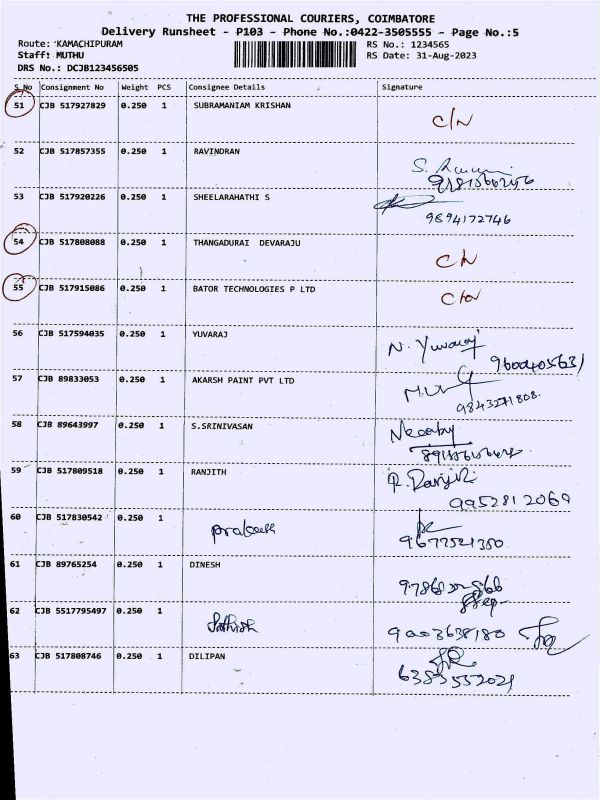 THE PROFESSIONAL COURIERS, COIMBATORE
Delivery Runsheet - P103 - Phone No.:0422-3505555 - Page No.:5
Route: KAMACHIPURAM RS No.: 1234565
Staff: MUTHU RS Date: 31-Aug-2023
DRS No.: DCJB123456505
S No Consignment No Weight PCS Consignee Details Signature
51 CJB 517927829 0.250 1 SUBRAMANIAM KRISHAN
52 CJB 517857355 0.250 1 RAVINDRAN
53 CJB 517920226 0.250 1 SHEELARAHATHI S
9894172746
54 CJB 517808088 0.250 1 THANGADURAI DEVARAJU
55 CJB 517915086 0.250 1 BATOR TECHNOLOGIES P LTD
56 CJB 517594035 0.250 1 YUVARAJ N. Yuvaraj
9600405631
57 CJB 89833053 0.250 1 AKARSH PAINT PVT LTD
9843271808.
58 CJB 89643997 0.250 1 S.SRINIVASAN
59 CJB 517809518 0.250 1 RANJITH R. Ranjith
9952812069
60 CJB 517830542 0.250 1
9677521350
61 CJB 89765254 0.250 1 DINESH
62 CJB 5517795497 0.250 1 Sathish
9003638180
63 CJB 517808746 0.250 1 DILIPAN
6383552021